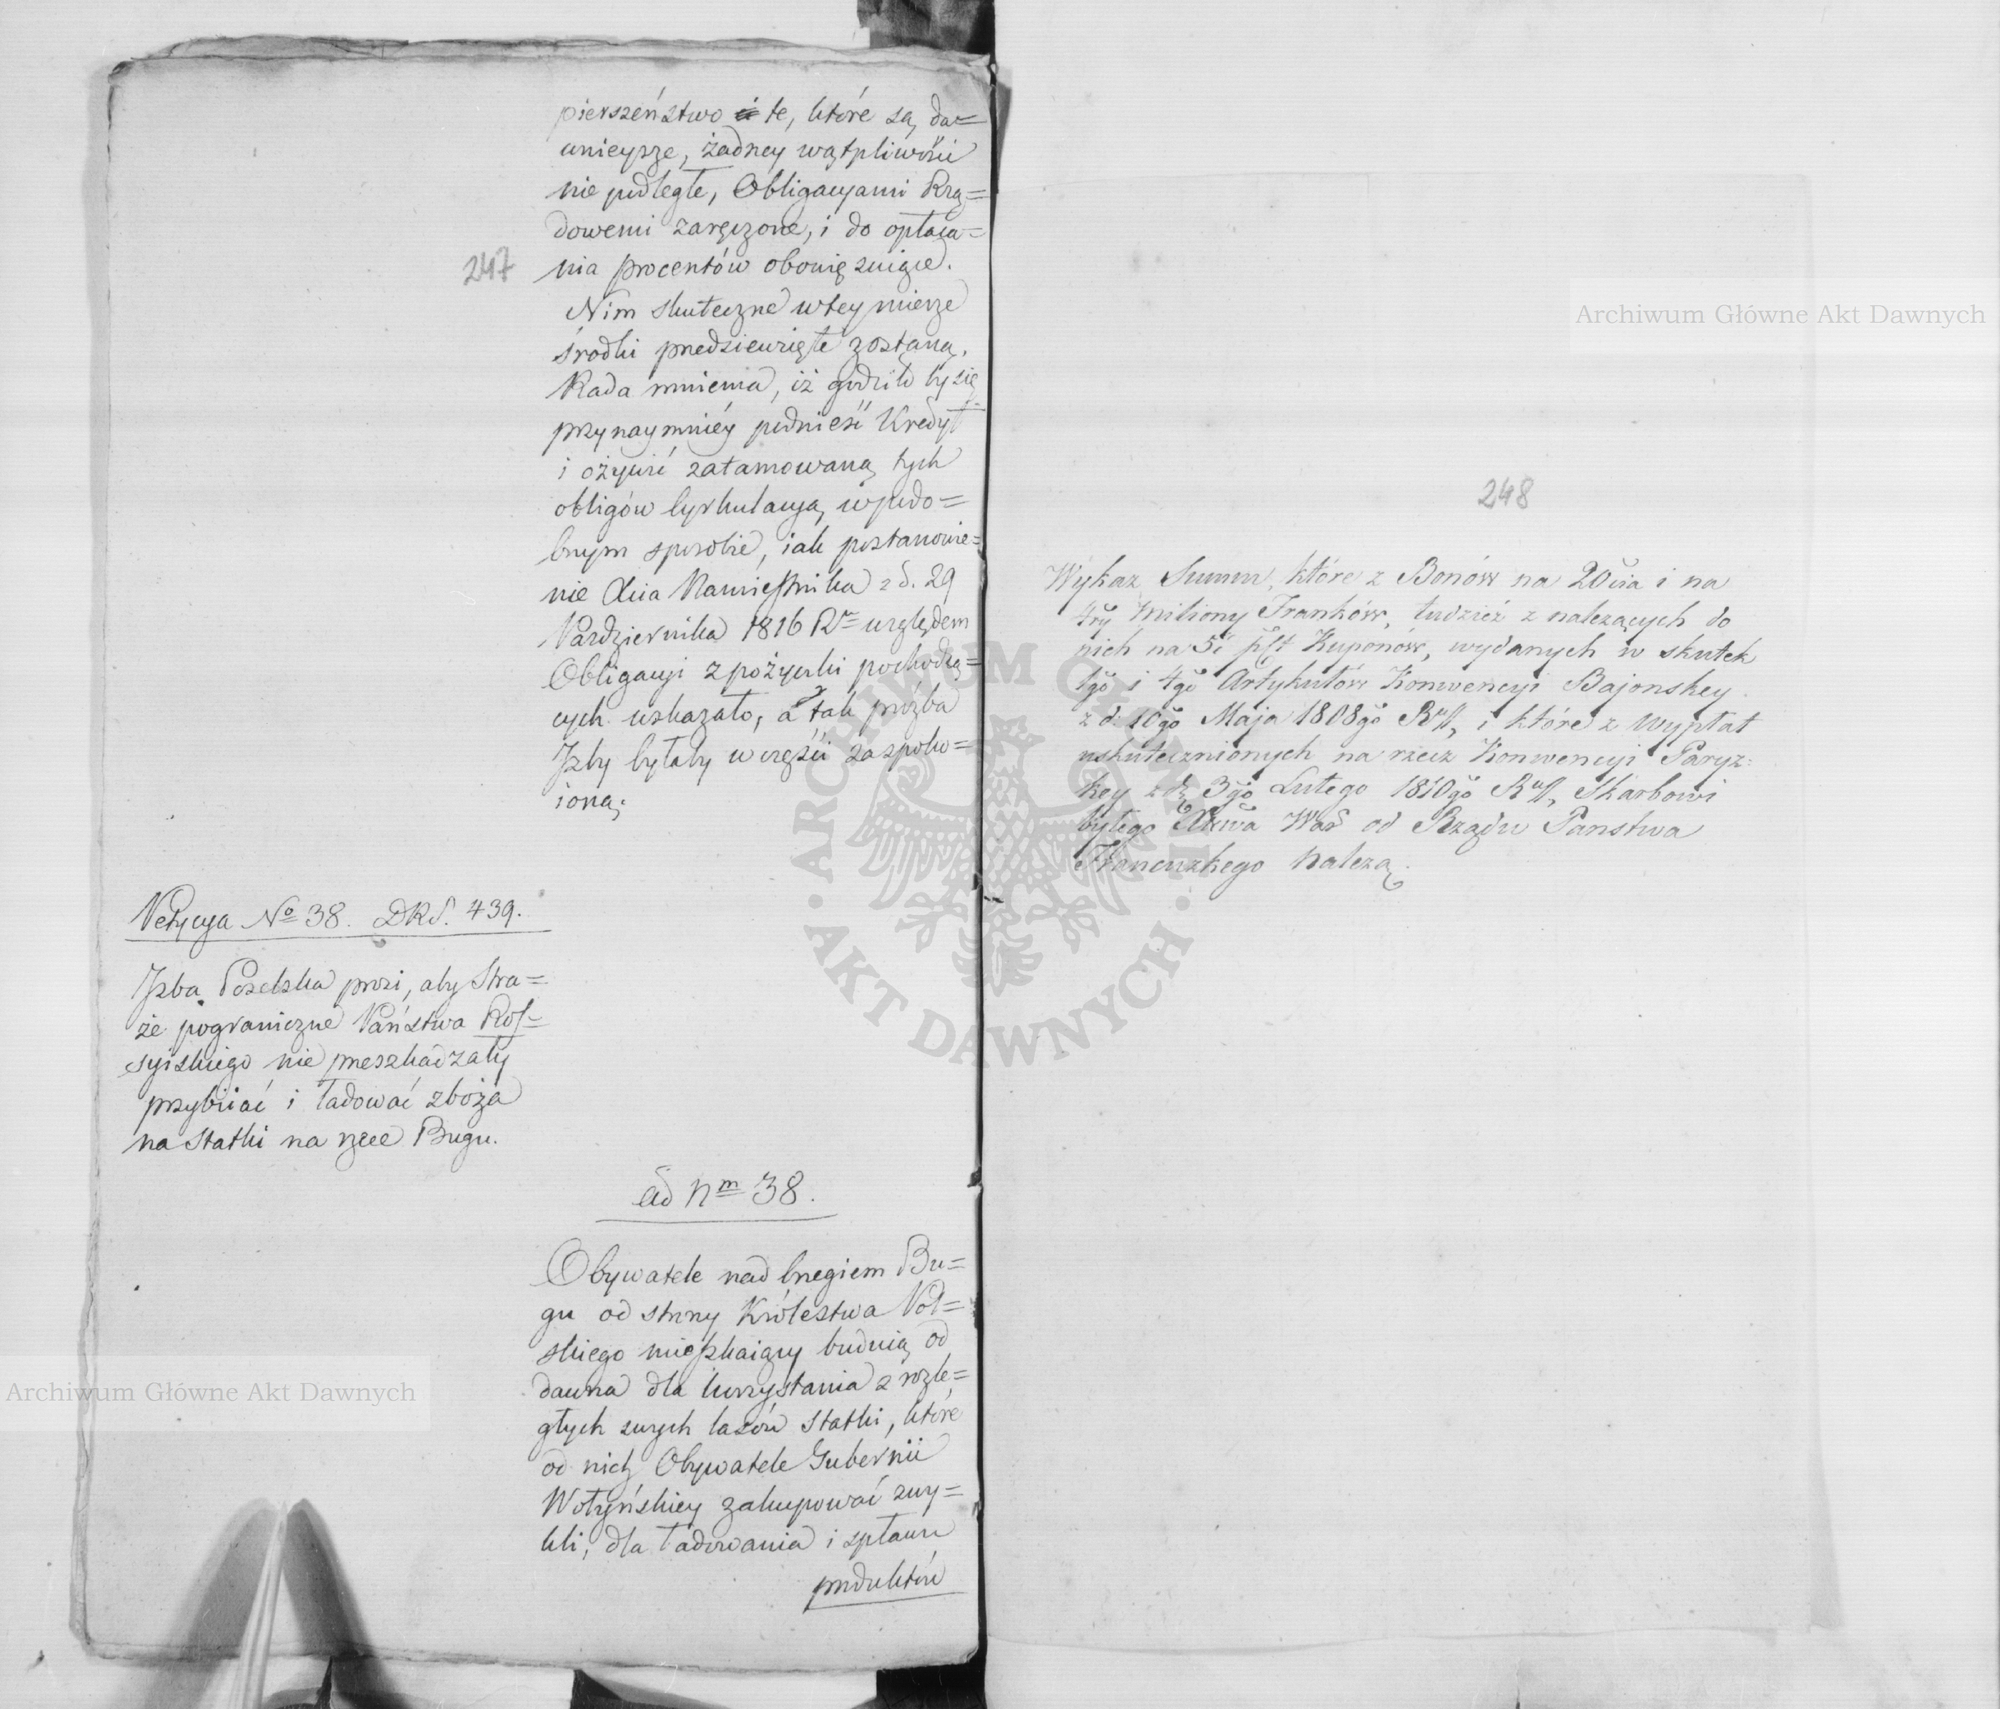 pierszeństwo te, które są da=
wnieysze, żadney wątpliwości
nie podległe, Obligacyami Rzą=
dowemi zaręczone, i do opłaca=
247
nia procentów obowięzuiące.
Nim skuteczne w tey mierze
środki przedsiewzięte zostaną,
Rada mniema, iż godziło by się
przynaymniéy podnieść Kredyt
i ożywić zatamowaną tych
obligów Cyrkulacyą, w podo=
bnym sposobie, iak postanowie=
nie Xcia Namiestnika z d. 29
Października 1816 R. względem
Obligacyi z pożyczki pochodzą=
cych wskazało, a tak prożba
Jzby byłaby w części zaspoko=
ioną;
Petycya No 38. DKS. 439.
Jzba Poselska prosi, aby Stra=
że pograniczne Państwa Ros=
syiskiego nie przeszkadzały
przybiiać i ładować zboża
na Statki na rzece Bugu.
ad Nm 38.
Obywatele nad brzegiem Bu=
gu od strony Królestwa Pol=
skiego mieszkaiący buduią od
dawna dla korzystania z rozle=
głych swych lasów Statki, które
od nich Obywatele Gubernii
Wołyńskiey zakupować zwy=
kli, dla ładowania i spławu
produktów
248
Wykaz Summ, które z Bonów na 20cia i na
4ry Miliony Franków, tudzież z nalezących do
nich na 5c pCt Kuponów, wydanych w skutek
1go i 4go Artykułów Konwencyi Bajonskey
z d. 10go Maja 1808go Ru, i które z Wypłat
uskutecznionych na rzecz Konwencyi Paryz=
key z d. 3go Lutego 1810go Ru, Skarbowi
byłego Xtwa War od Rządu Panstwa
Francuzkego nalezą.
Archiwum Główne Akt Dawnych
Archiwum Główne Akt Dawnych
ARCHIWUM GŁÓWNE AKT DAWNYCH